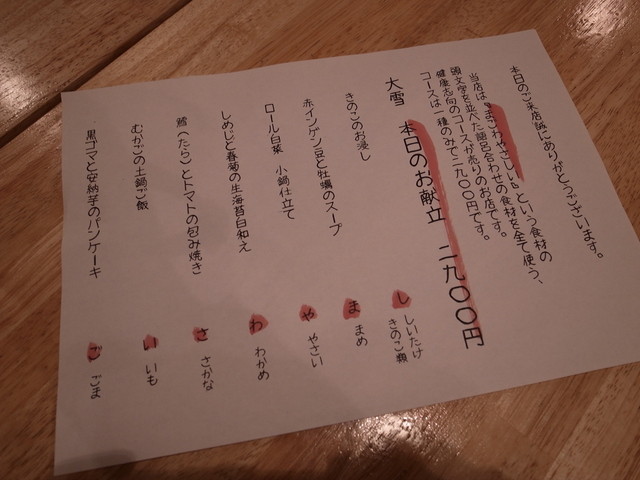 本日のご来店誠にありがとうございます。
当店は『まごわやさしい』という食材の
頭文字を並べた語呂合わせの食材を全て使う、
健康志向のコースが売りのお店です。
コースは一種のみで二九〇〇円です。
大雪 本日のお献立 二九〇〇円
きのこのお浸し し しいたけ きのこ類
赤インゲン豆と牡蠣のスープ ま まめ
ロール白菜 小鍋仕立て や やさい
しめじと春菊の生海苔白和え わ わかめ
鱈(たら)とトマトの包み焼き さ さかな
むかごの土鍋ご飯 い いも
黒ゴマと安納芋のパンケーキ ご ごま